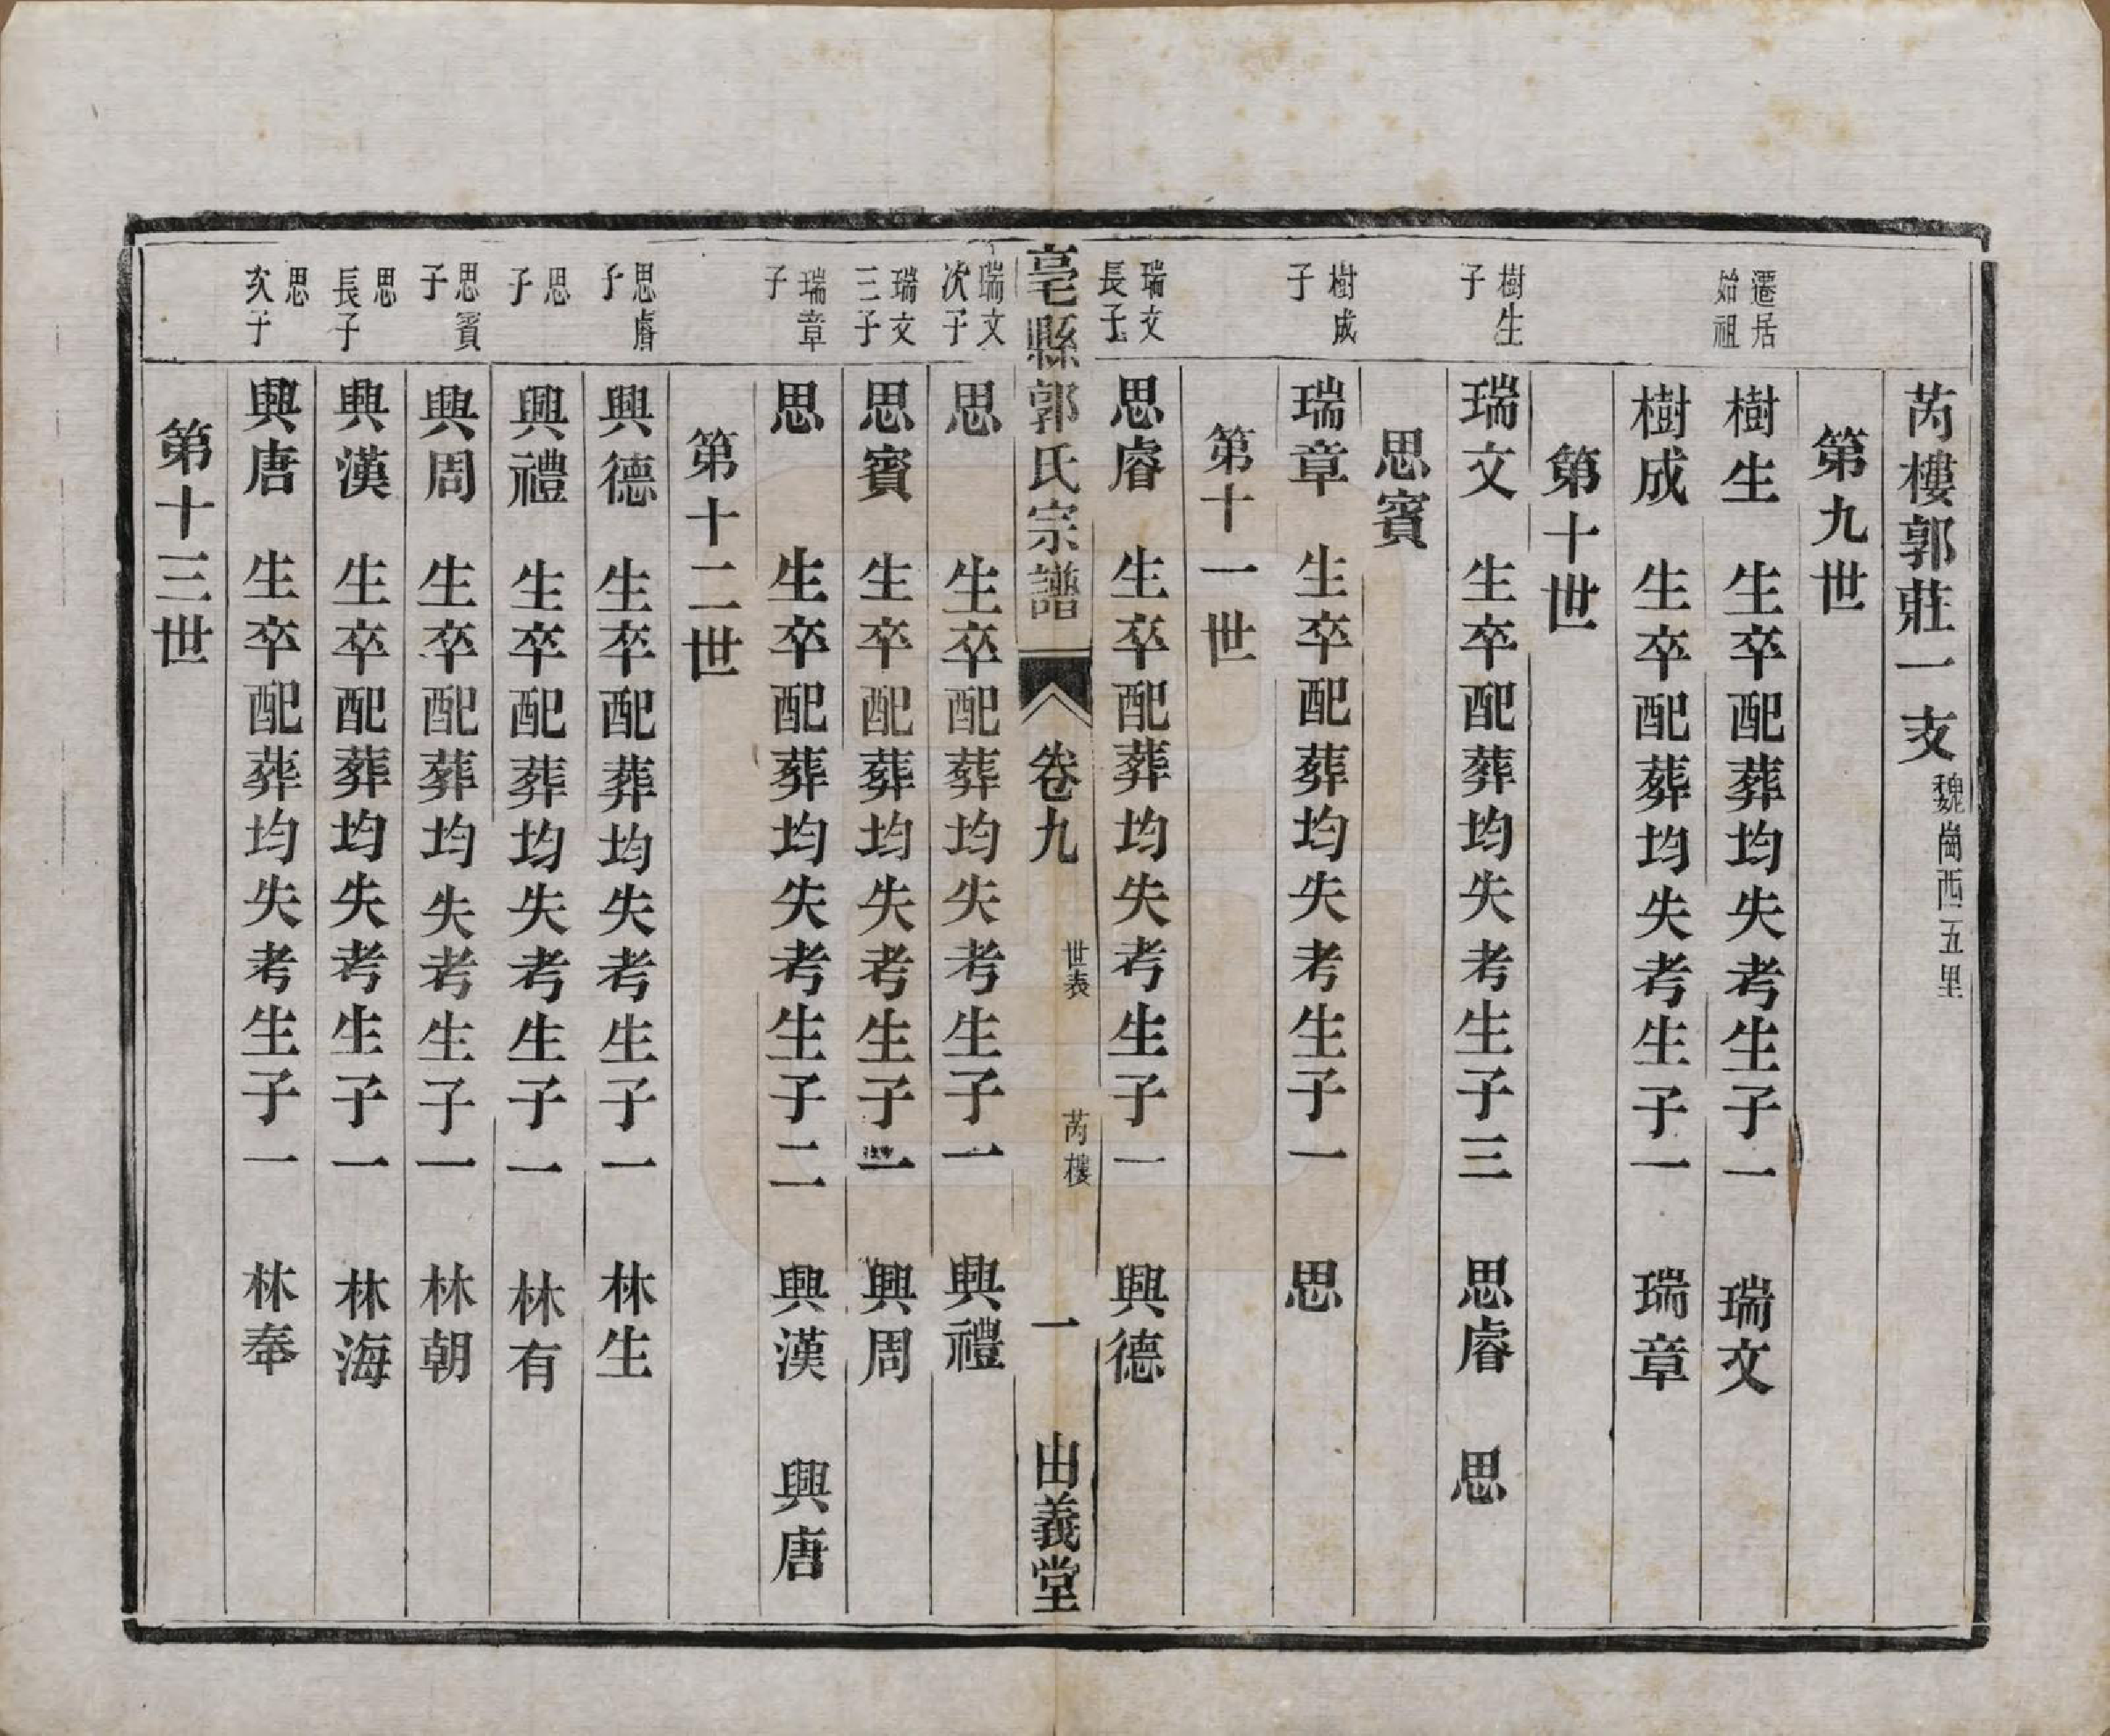 芮樓郭莊一支魏崗西五里
第九世
遷居始祖
樹生　生卒配葬均失考生子一　瑞文
樹成　生卒配葬均失考生子一　瑞章
第十世
樹生子
瑞文　生卒配葬均失考生子三　思睿　思
思賓
樹成子
瑞章　生卒配葬均失考生子一　思
第十一世
瑞文長子
思睿　生卒配葬均失考生子一　興德
亳縣郭氏宗譜　卷九　世表　芮樓　一　由義堂
瑞文次子
思　生卒配葬均失考生子一　興禮
瑞文三子
思賓　生卒配葬均失考生子一　興周
瑞章子
思　生卒配葬均失考生子二　興漢　興唐
第十二世
思睿子
興德　生卒配葬均失考生子一　林生
思子
興禮　生卒配葬均失考生子一　林有
思賓子
興周　生卒配葬均失考生子一　林朝
思長子
興漢　生卒配葬均失考生子一　林海
思次子
興唐　生卒配葬均失考生子一　林奉
第十三世